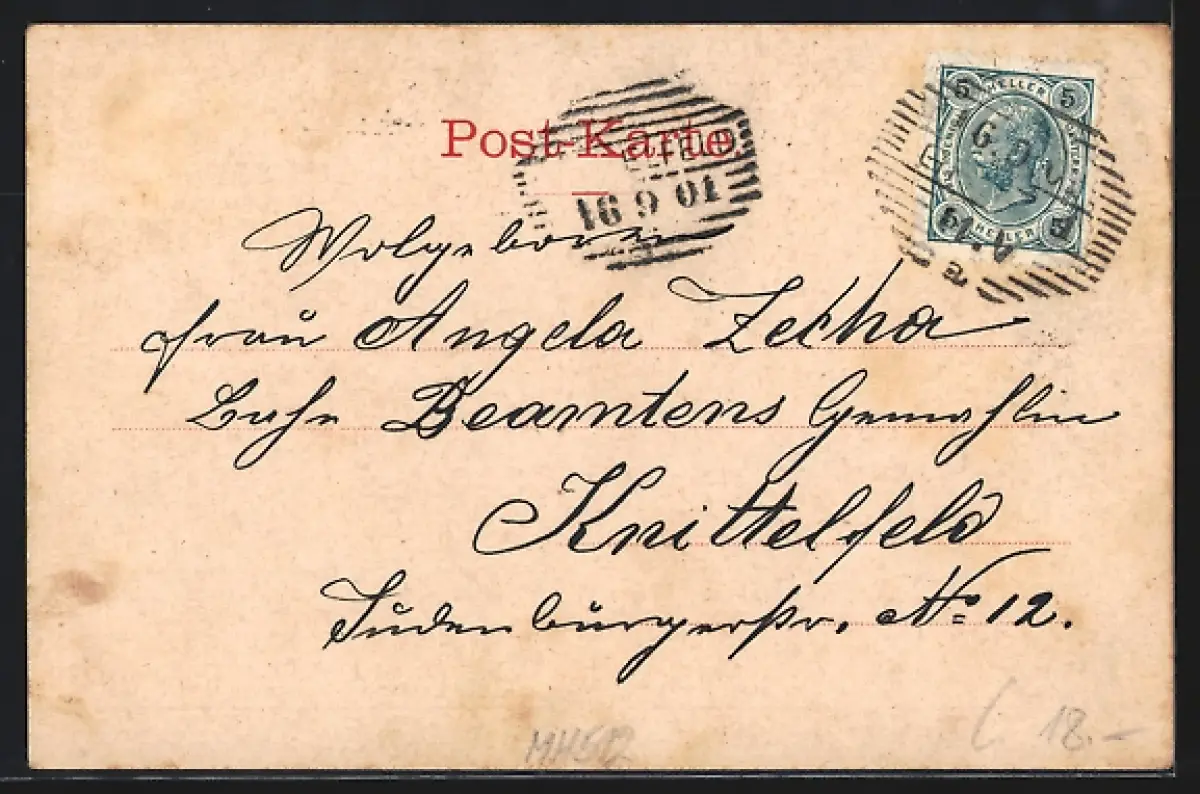 Post-Karte.
ELFELD
16 9 01
5 HELLER 5
6. 9.
5 HELLER 5
a
Wolgeboren
Frau Angela Zecha
Beamtens Gemahlin
Knittelfeld
Judenburgerstr. No 12.
MH512
18.-